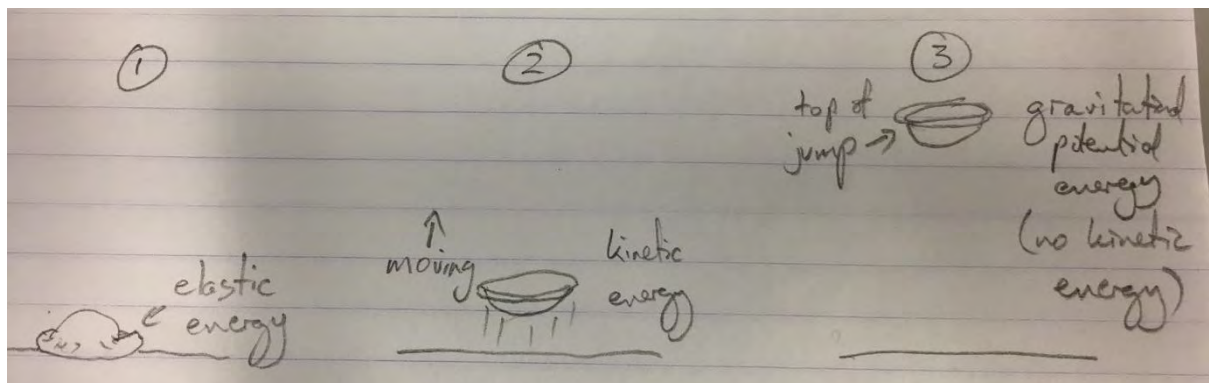 ①
②
③
elastic
energy
moving
kinetic
energy
top of
jump →
gravitational
potential
energy
(no kinetic
energy)